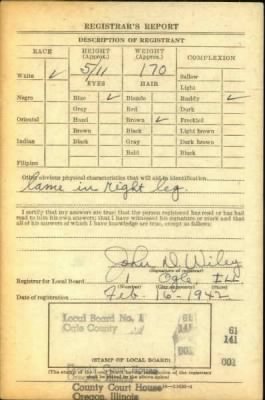 REGISTRAR'S REPORT
DESCRIPTION OF REGISTRANT
RACE HEIGHT (Approx.) WEIGHT (Approx.) COMPLEXION
5/11 170
White ✓ EYES HAIR Sallow
Light
Negro Blue ✓ Blonde Ruddy ✓
Gray Red Dark
Oriental Hazel Brown ✓ Freckled
Brown Black Light brown
Indian Black Gray Dark brown
Bald Black
Filipino
Other obvious physical characteristics that will aid in identification
Lame in right leg.
I certify that my answers are true; that the person registered has read or has had
read to him his own answers; that I have witnessed his signature or mark and that
all of his answers of which I have knowledge are true, except as follows:
John D. Wiley
(Signature of registrar)
Registrar for Local Board Ogle, Ill.
(Number) (City or county) (State)
Date of registration Feb. 16-1942
Local Board No. 1 61
Ogle County 141
001
61
141
001
(STAMP OF LOCAL BOARD)
(The stamp of the Local Board having jurisdiction of the registrant
shall be placed in the above space)
County Court House
Oregon, Illinois